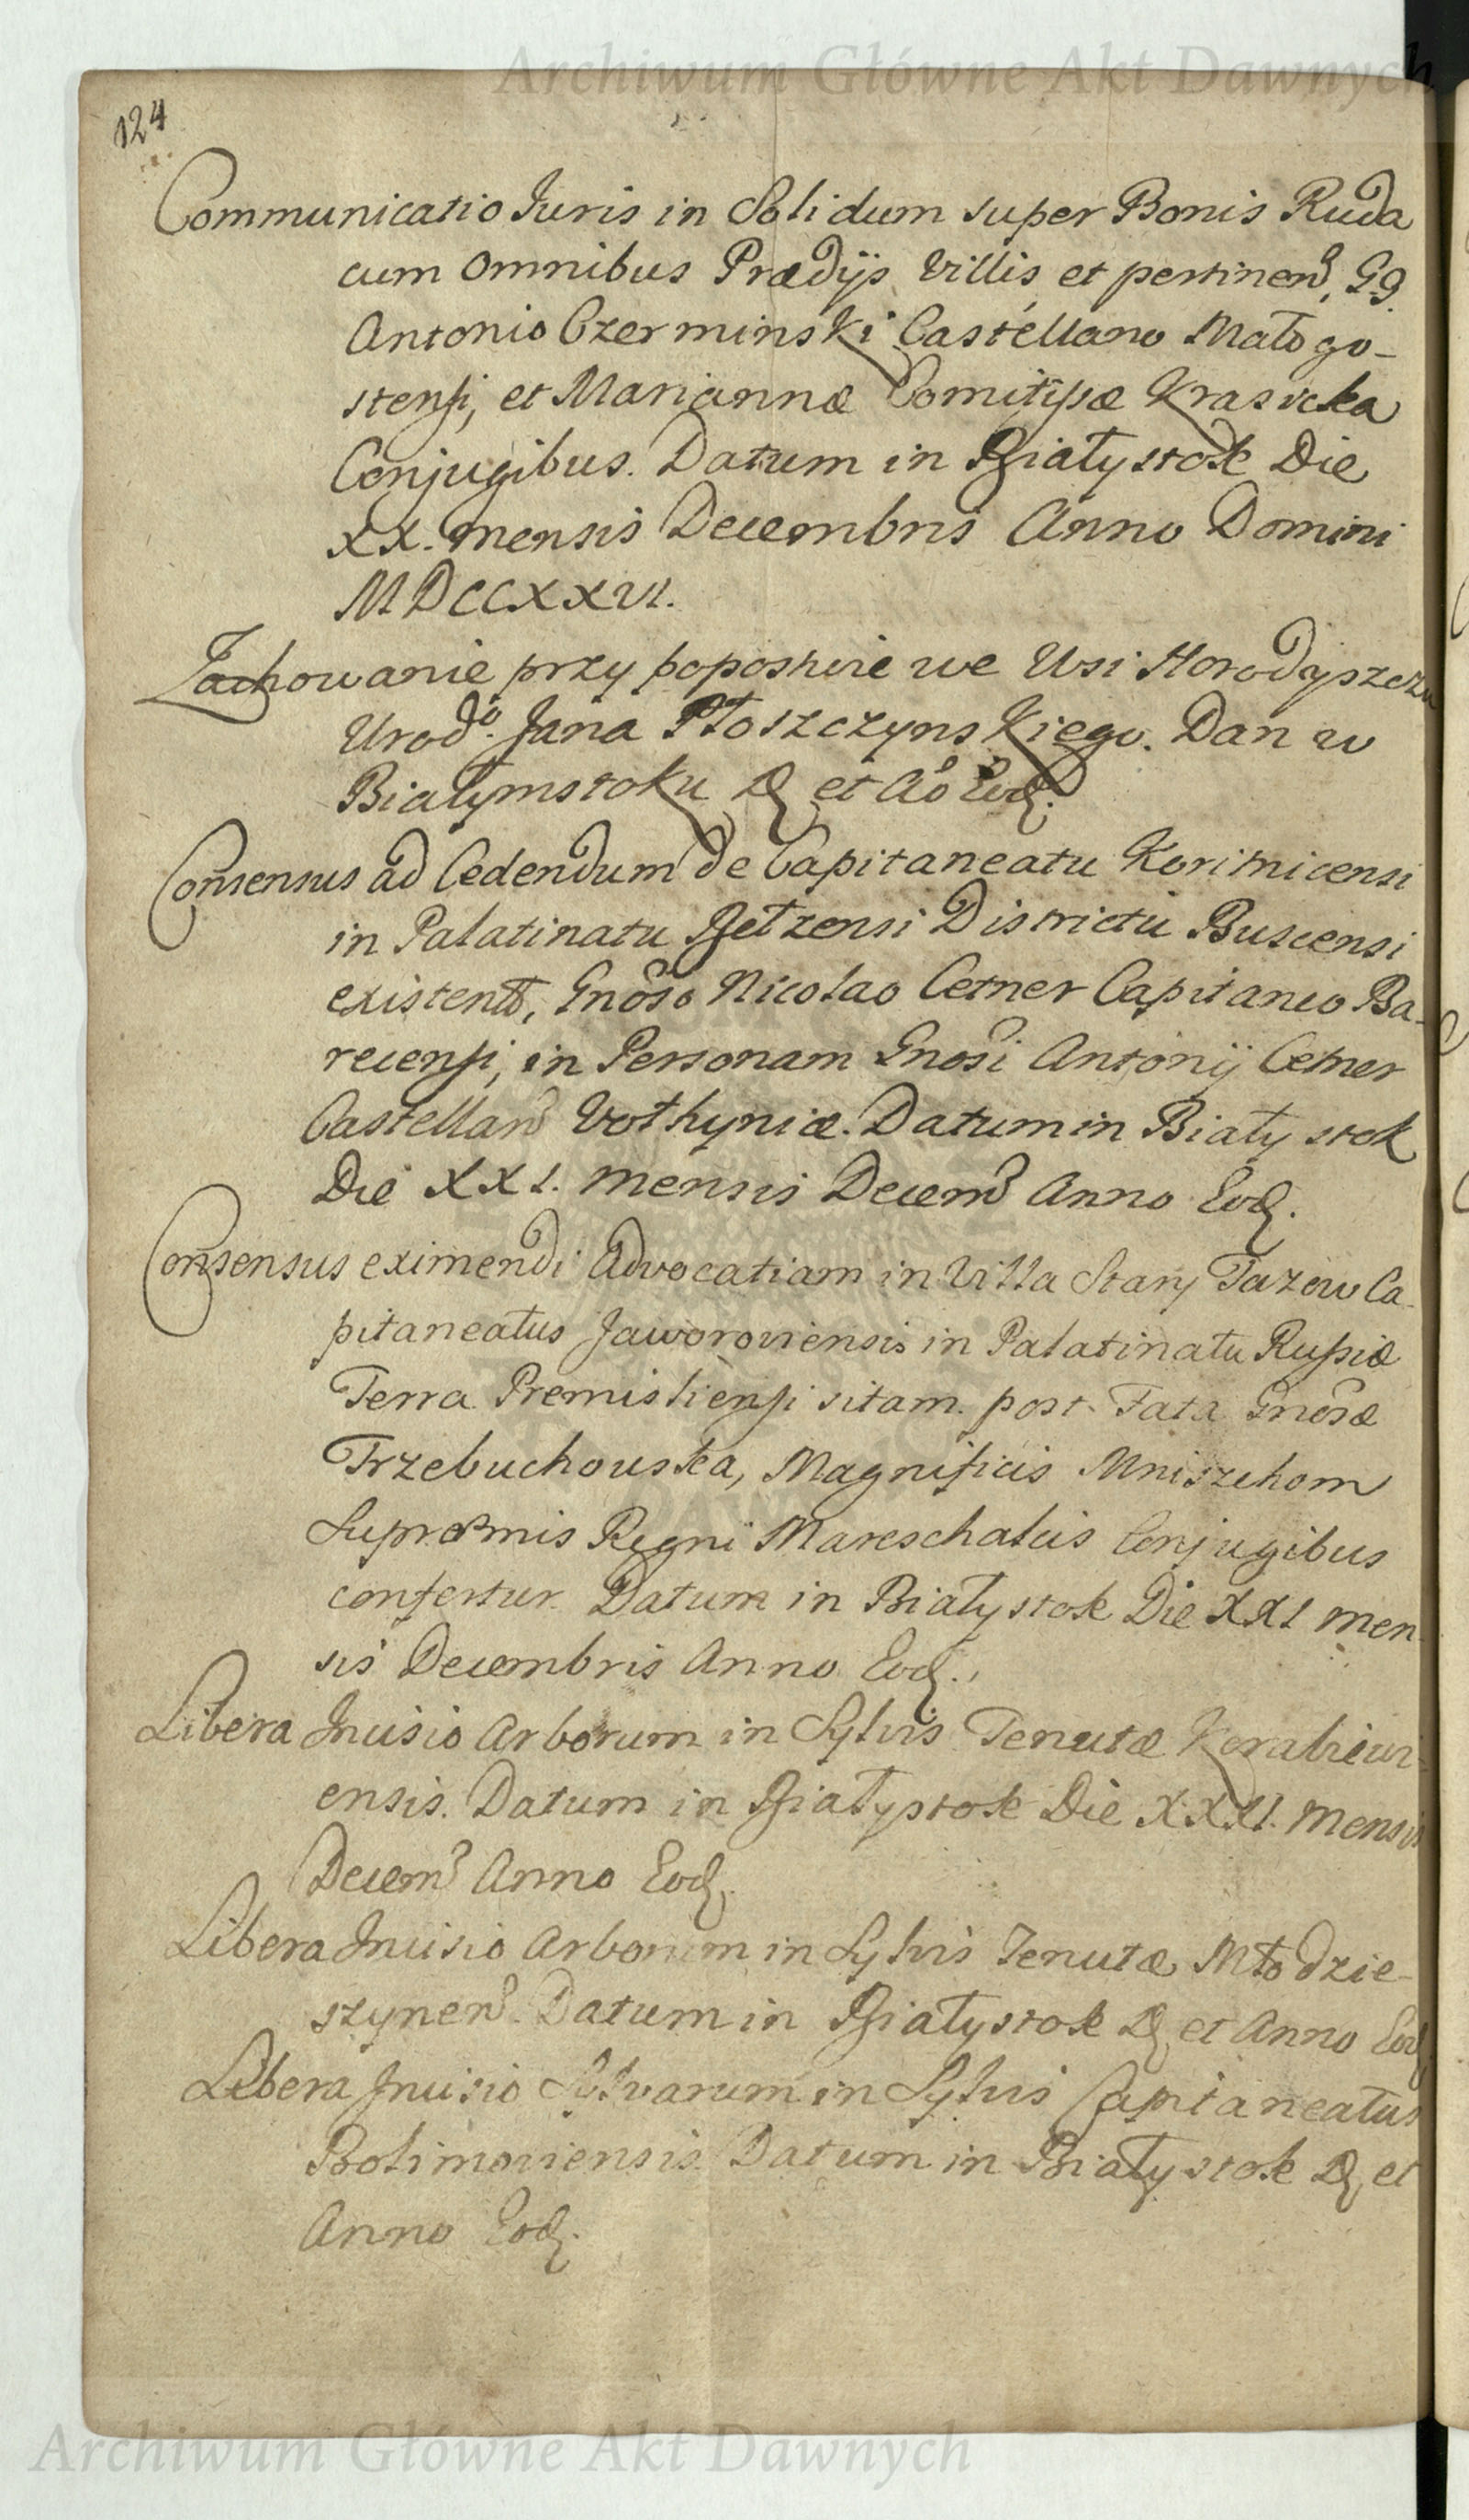 Archiwum Główne Akt Dawnych
124
Communicatio Juris in Solidum super Bonis Ruda
cum omnibus Prædijs Villis et pertinen, GG
Antonio Czerminski Castellano Małogo-
stensi, et Mariannæ Comitissæ Krasicka
Conjugibus. Datum in Białystok Die
XX. mensis Decembris Anno Domini
MDCCXXVI.
Zachowanie przy poposzczie we Wsi Horodyszczu
Urodo. Jana Płoszczynskiego. Dan w
Białymstoku D et Ao Eod.
Consensus ad Cedendum de Capitaneatu Koritnicensi
in Palatinatu Bełzensi Districtu Buscensi
existent, Gnoso Nicolao Cetner Capitaneo Ba-
recensi, in Personam Gnosi Antonij Cetner
Castellan Volhyniæ. Datum in Białystok
Die XXI. mensis Decem Anno Eod.
Consensus eximendi Advocatiam in Villa Stary Jazow Ca-
pitaneatus Jaworoviensis in Palatinatu Russiæ
Terra Premisliensi sitam post Fata Gnosæ
Trzebuchouska, Magnificis Mniszchom
Supremis Regni Mareschalcis Conjugibus
confertur. Datum in Białystok Die XXI men
sis Decembris Anno Eod.
Libera Incisio Arborum in Sylvis Tenutæ Korabiewi-
ensis. Datum in Białystok Die XXXI. Mensis
Decem Anno Eod.
Libera Incisio Arborum in Sylvis Tenutæ Młodzie-
szynen. Datum in Białystok D et Anno Eod
Libera Incisio Sylvarum in Sylvis Capitaneatus
Bolimoviensis Datum in Białystok D et
Anno Eod.
Archiwum Główne Akt Dawnych